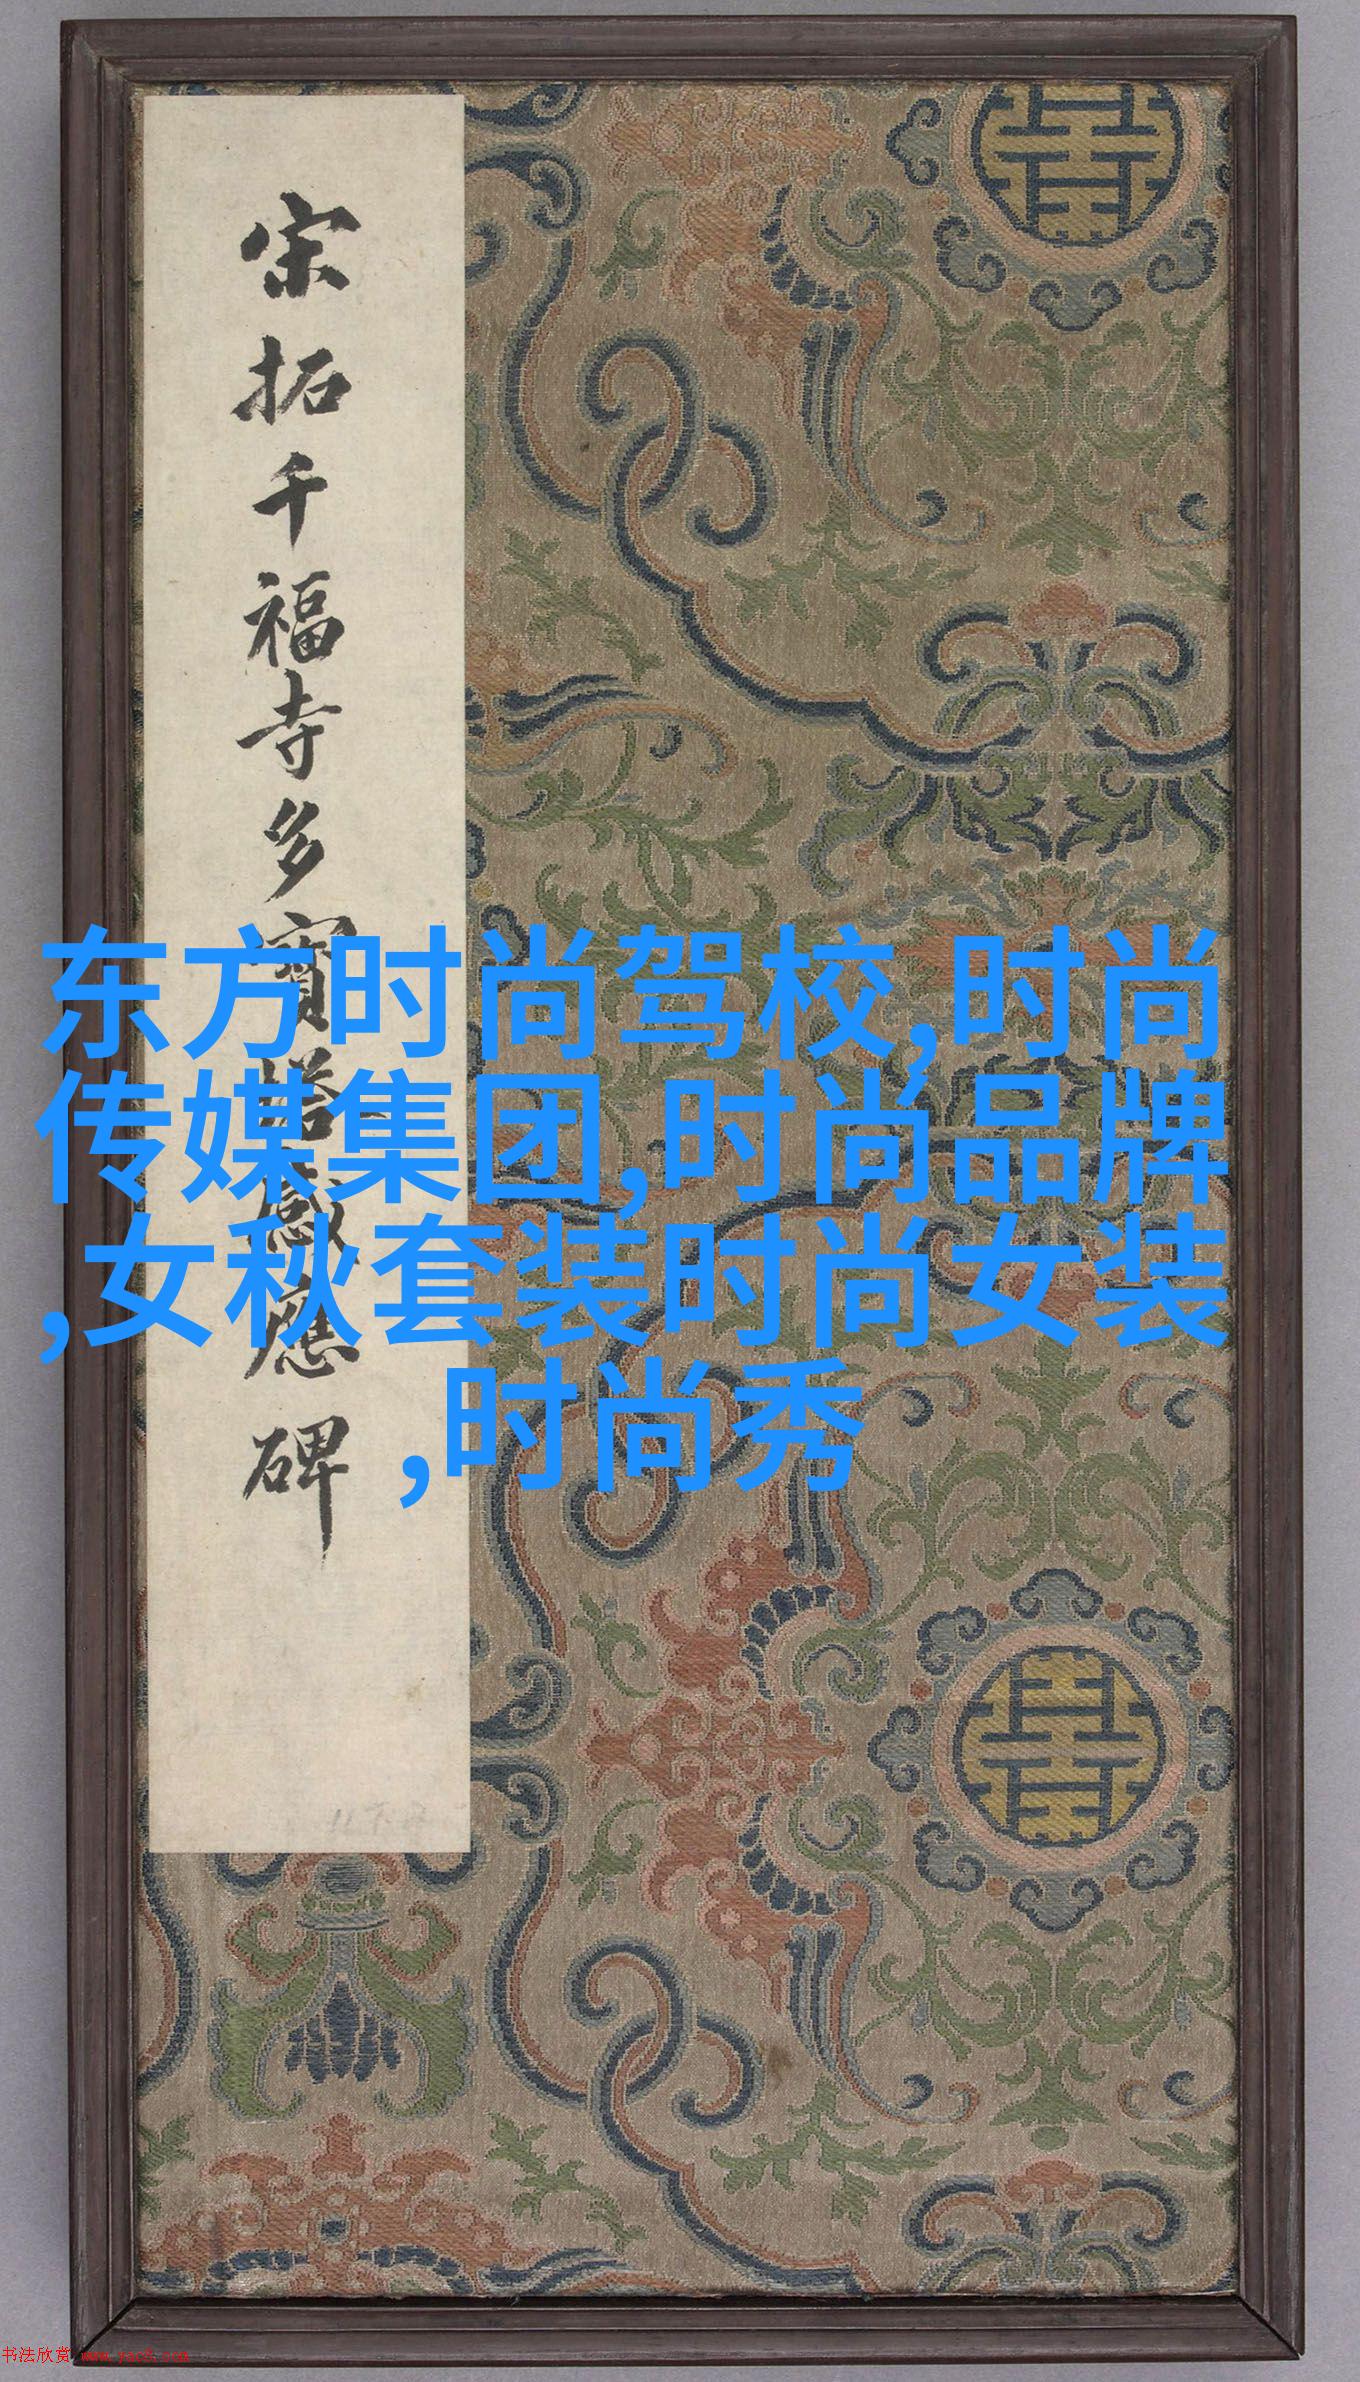 宋拓千福寺多寶塔感應碑
东方时尚驾校,时尚
传媒集团,时尚品牌
,女秋套装时尚女装
,时尚秀
书法欣赏 www.yac8.com